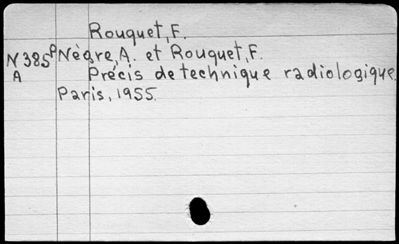 Rouquet, F.
N385p Nègre, A. et Rouquet, F.
A Précis de technique radiologique.
Paris, 1955.